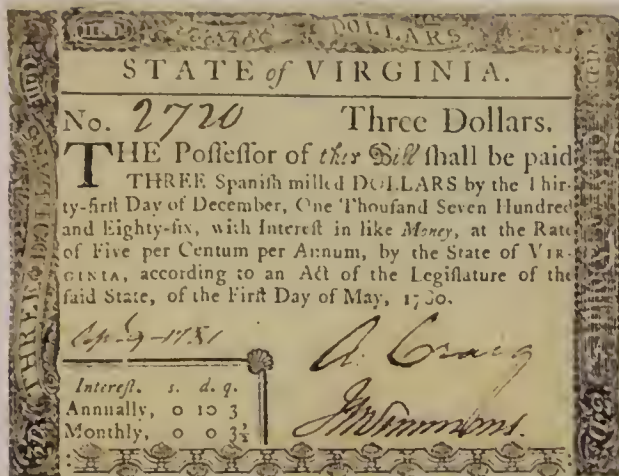 DOLLARS
STATE of VIRGINIA.
No. 2720 Three Dollars.
THE Poſſeſſor of this Bill ſhall be paid
THREE Spaniſh milled DOLLARS by the Thir-
ty-firſt Day of December, One Thouſand Seven Hundred
and Eighty-ſix, with Intereſt in like Money, at the Rate
of Five per Centum per Annum, by the State of VIR-
GINIA, according to an Act of the Legiſlature of the
ſaid State, of the Firſt Day of May, 1780.
1781
A. Craig
Intereſt. s. d. q.
Annually, 0 10 3
Monthly, 0 0 3½
THREE DOLLARS